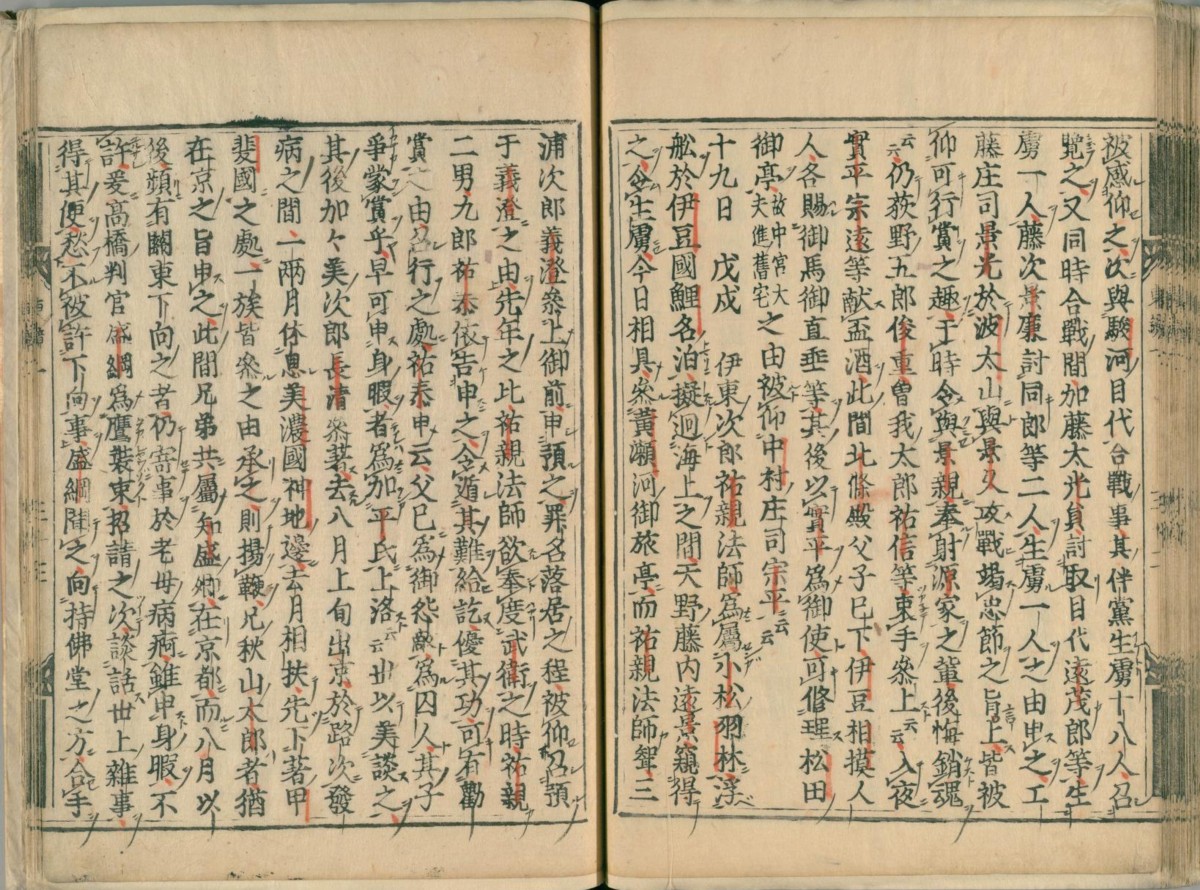 被感仰之次與駿河目代合戰事其伴黨生虜十八人召
覽之又同時合戰間加藤太光員討取目代遠茂郎等生
虜一人藤次景廉討同郎等二人生虜一人之由申之工
藤庄司景光於波太山與景久攻戰竭忠節之旨上皆被
仰可行賞之趣于時令與景親奉射源家之輩後悔銷魂
云云仍荻野五郎俊重曾我太郎祐信等束手參上云云入夜
實平宗遠等献盃酒此間北條殿父子已下伊豆相摸人
人各賜御馬御直垂等其後以實平爲御使可修理松田
御亭故中宮大夫進舊宅之由被仰中村庄司宗平云云
十九日 戊戌 伊東次郎祐親法師爲屬小松羽林浮
舩於伊豆國鯉名泊擬迴海上之間天野藤内遠景窺得
之令生虜今日相具參黃瀬河御旅亭而祐親法師聟三
浦次郎義澄參上御前申預之罪名落居之程被仰召預
于義澄之由先年之比祐親法師欲奉度武衛之時祐親
二男九郎祐泰依告申之令遁其難給訖優其功可有勸
賞之由召行之處祐泰申云父已爲御怨敵爲囚人其子
爭蒙賞乎早可申身暇者爲加平氏上洛云云世以美談之
其後加々美次郎長清參著去八月上旬出京於路次發
病之間一兩月休息美濃國神地邊去月相扶先卜著甲
斐國之處一族皆參之由承之則揚鞭兄秋山太郎者猶
在京之旨申之此間兄弟共屬知盛卿在京都而八月以
後頻有關東下向之者仍寄事於老母病痾雖申身暇不
許爰高橋判官盛綱爲鷹裝束招請之次談話世上雜事
得其便愁不被許下向事盛綱聞之向持佛堂之方合手